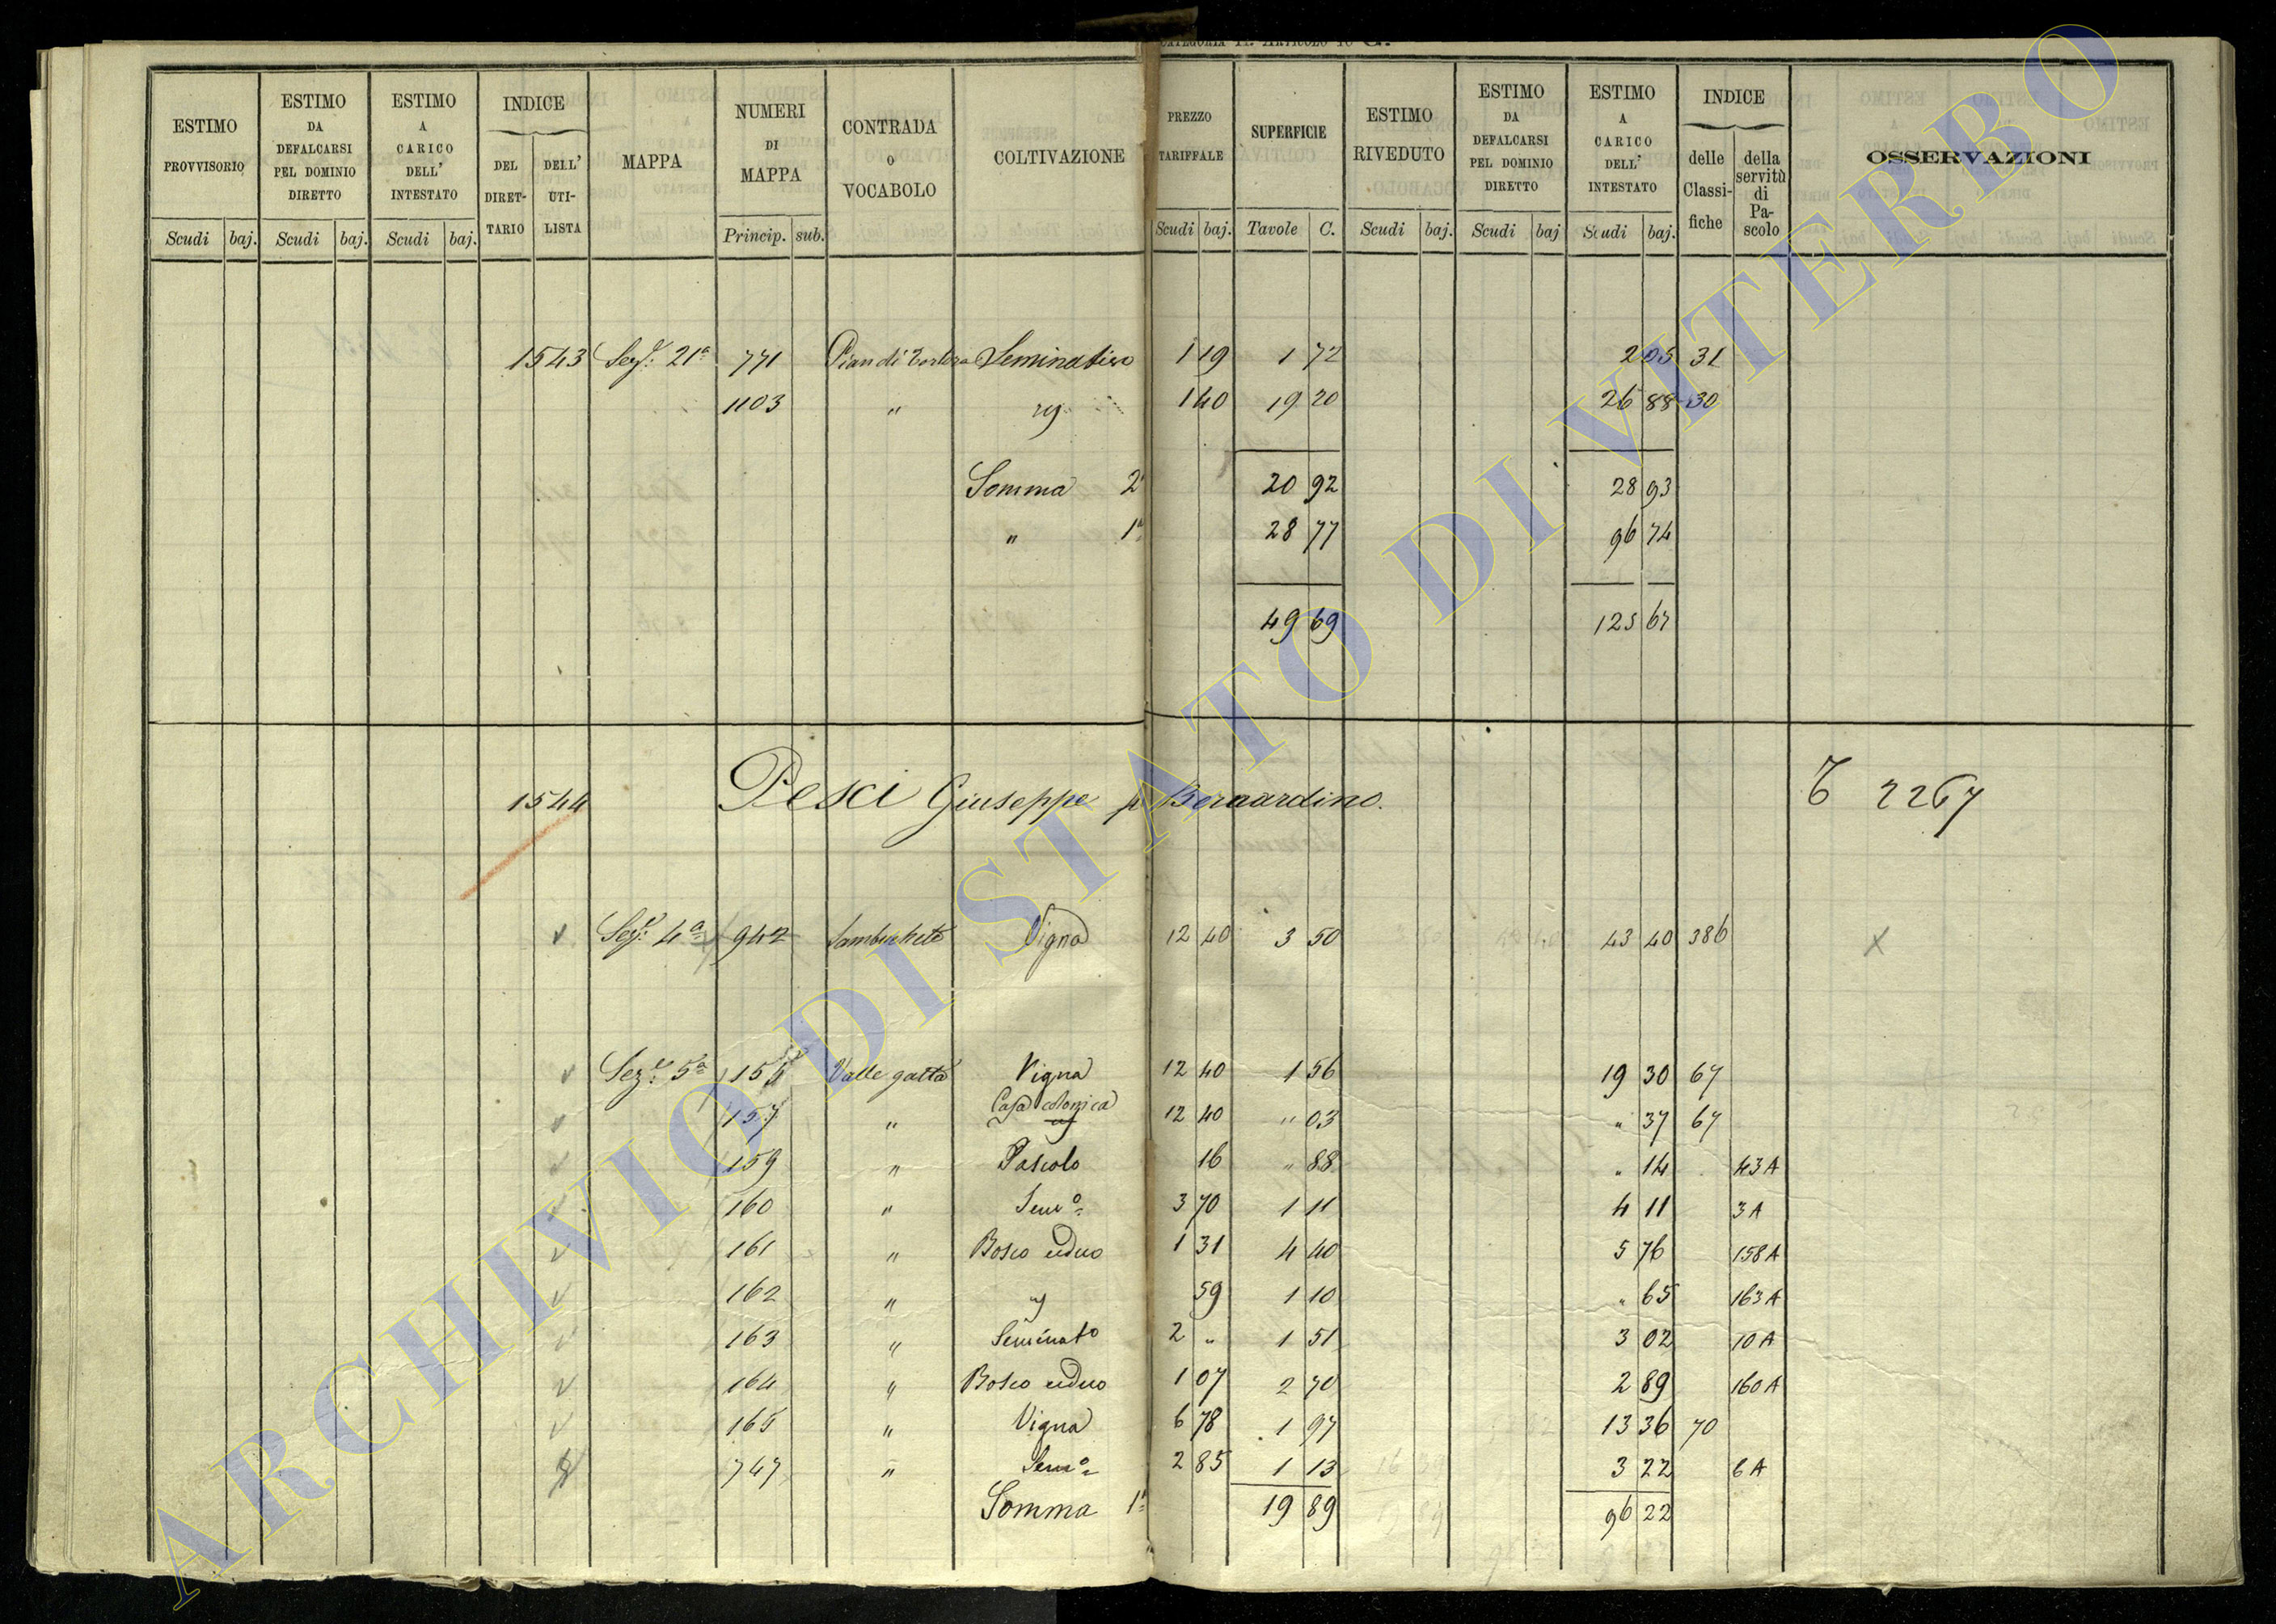 CATEGORIA II. ARTICOLO 16 G.
ESTIMO PROVVISORIO Scudi baj.
ESTIMO DA DEFALCARSI PEL DOMINIO DIRETTO Scudi baj.
ESTIMO A CARICO DELL' INTESTATO Scudi baj.
INDICE DEL DIRET-TARIO DELL' UTI-LISTA
MAPPA
NUMERI DI MAPPA Princip. sub.
CONTRADA O VOCABOLO
COLTIVAZIONE
PREZZO TARIFFALE Scudi baj.
SUPERFICIE Tavole C.
ESTIMO RIVEDUTO Scudi baj.
ESTIMO DA DEFALCARSI PEL DOMINIO DIRETTO Scudi baj
ESTIMO A CARICO DELL' INTESTATO Scudi baj.
INDICE delle Classi-fiche della servitù di Pa-scolo
OSSERVAZIONI
1543 Sez.e 21a 771 Pian di Seminativo 1 19 1 72 2 05 31
1103 " 1 40 19 20 26 88 30
Somma 2a 20 92 28 93
" 1a 28 77 96 74
49 69 125 67
1544 Pesci Giuseppe q Bernardino. 2267
Sez.e 4a 942 Sambucheto Vigna 12 40 3 50 43 40 386 X
Sez.e 5a 154 Valle gatta Vigna 12 40 1 56 19 30 67
157 " Casa colonica 12 40 " 03 " 37 67
159 " Pascolo 16 " 88 " 14 43 A
160 " Semo 3 70 1 11 4 11 3 A
161 " Bosco ceduo 1 31 4 40 5 76 158 A
162 " 59 1 10 " 65 163 A
163 " Seminato 2 " 1 51 3 02 10 A
164 " Bosco ceduo 1 07 2 70 2 89 160 A
165 " Vigna 6 78 1 97 13 36 70
747 " Semo 2 85 1 13 3 22 6 A
Somma 1a 19 89 96 22
ARCHIVIO DI STATO DI VITERBO